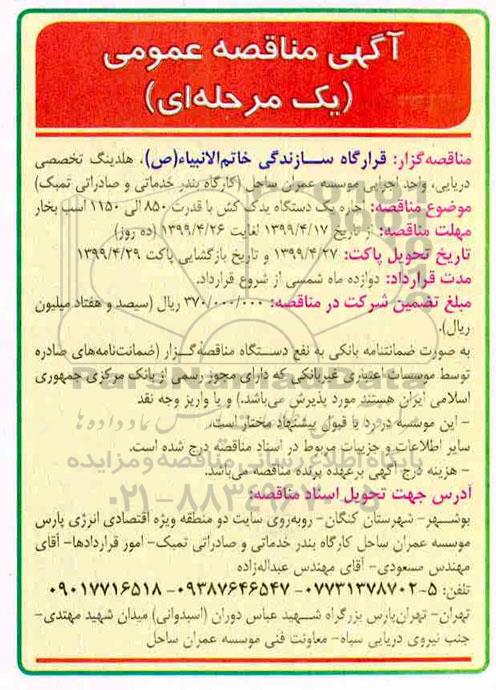 آگهی مناقصه عمومی
(یک مرحله‌ای)
مناقصه‌گزار: قرارگاه سازندگی خاتم‌الانبیاء(ص)، هلدینگ تخصصی
دریایی، واحد اجرایی موسسه عمران ساحل (کارگاه بندر خدماتی و صادراتی تمبک)
موضوع مناقصه: اجاره یک دستگاه یدک کش با قدرت ۸۵۰ الی ۱۱۵۰ اسب بخار
مهلت مناقصه: از تاریخ ۱۳۹۹/۴/۱۷ لغایت ۱۳۹۹/۴/۲۶ (ده روز)
تاریخ تحویل پاکت: ۱۳۹۹/۴/۲۷ و تاریخ بازگشایی پاکت ۱۳۹۹/۴/۲۹
مدت قرارداد: دوازده ماه شمسی از شروع قرارداد.
مبلغ تضمین شرکت در مناقصه: ۳۷۰/۰۰۰/۰۰۰ ریال (سیصد و هفتاد میلیون
ریال).
به صورت ضمانتنامه بانکی به نفع دستگاه مناقصه‌گزار (ضمانت‌نامه‌های صادره
توسط موسسات اعتباری غیربانکی که دارای مجوز رسمی از بانک مرکزی جمهوری
اسلامی ایران هستند مورد پذیرش می‌باشد.) و یا واریز وجه نقد
- این موسسه در رد یا قبول پیشنهاد مختار است.
سایر اطلاعات و جزییات مربوط در اسناد مناقصه درج شده است.
- هزینه درج آگهی برعهده برنده مناقصه می‌باشد.
آدرس جهت تحویل اسناد مناقصه:
بوشهر- شهرستان کنگان- روبه‌روی سایت دو منطقه ویژه اقتصادی انرژی پارس
موسسه عمران ساحل کارگاه بندر خدماتی و صادراتی تمبک- امور قراردادها- آقای
مهندس مسعودی- آقای مهندس عبداله‌زاده
تلفن: ۵-۰۷۷۳۱۳۷۸۷۰۲- ۰۹۳۸۷۶۴۶۵۴۷- ۰۹۰۱۷۷۱۶۵۱۸
تهران- تهران‌پارس بزرگراه شهید عباس دوران (اسبدوانی) میدان شهید مهتدی-
جنب نیروی دریایی سپاه- معاونت فنی موسسه عمران ساحل
ParsNamadData